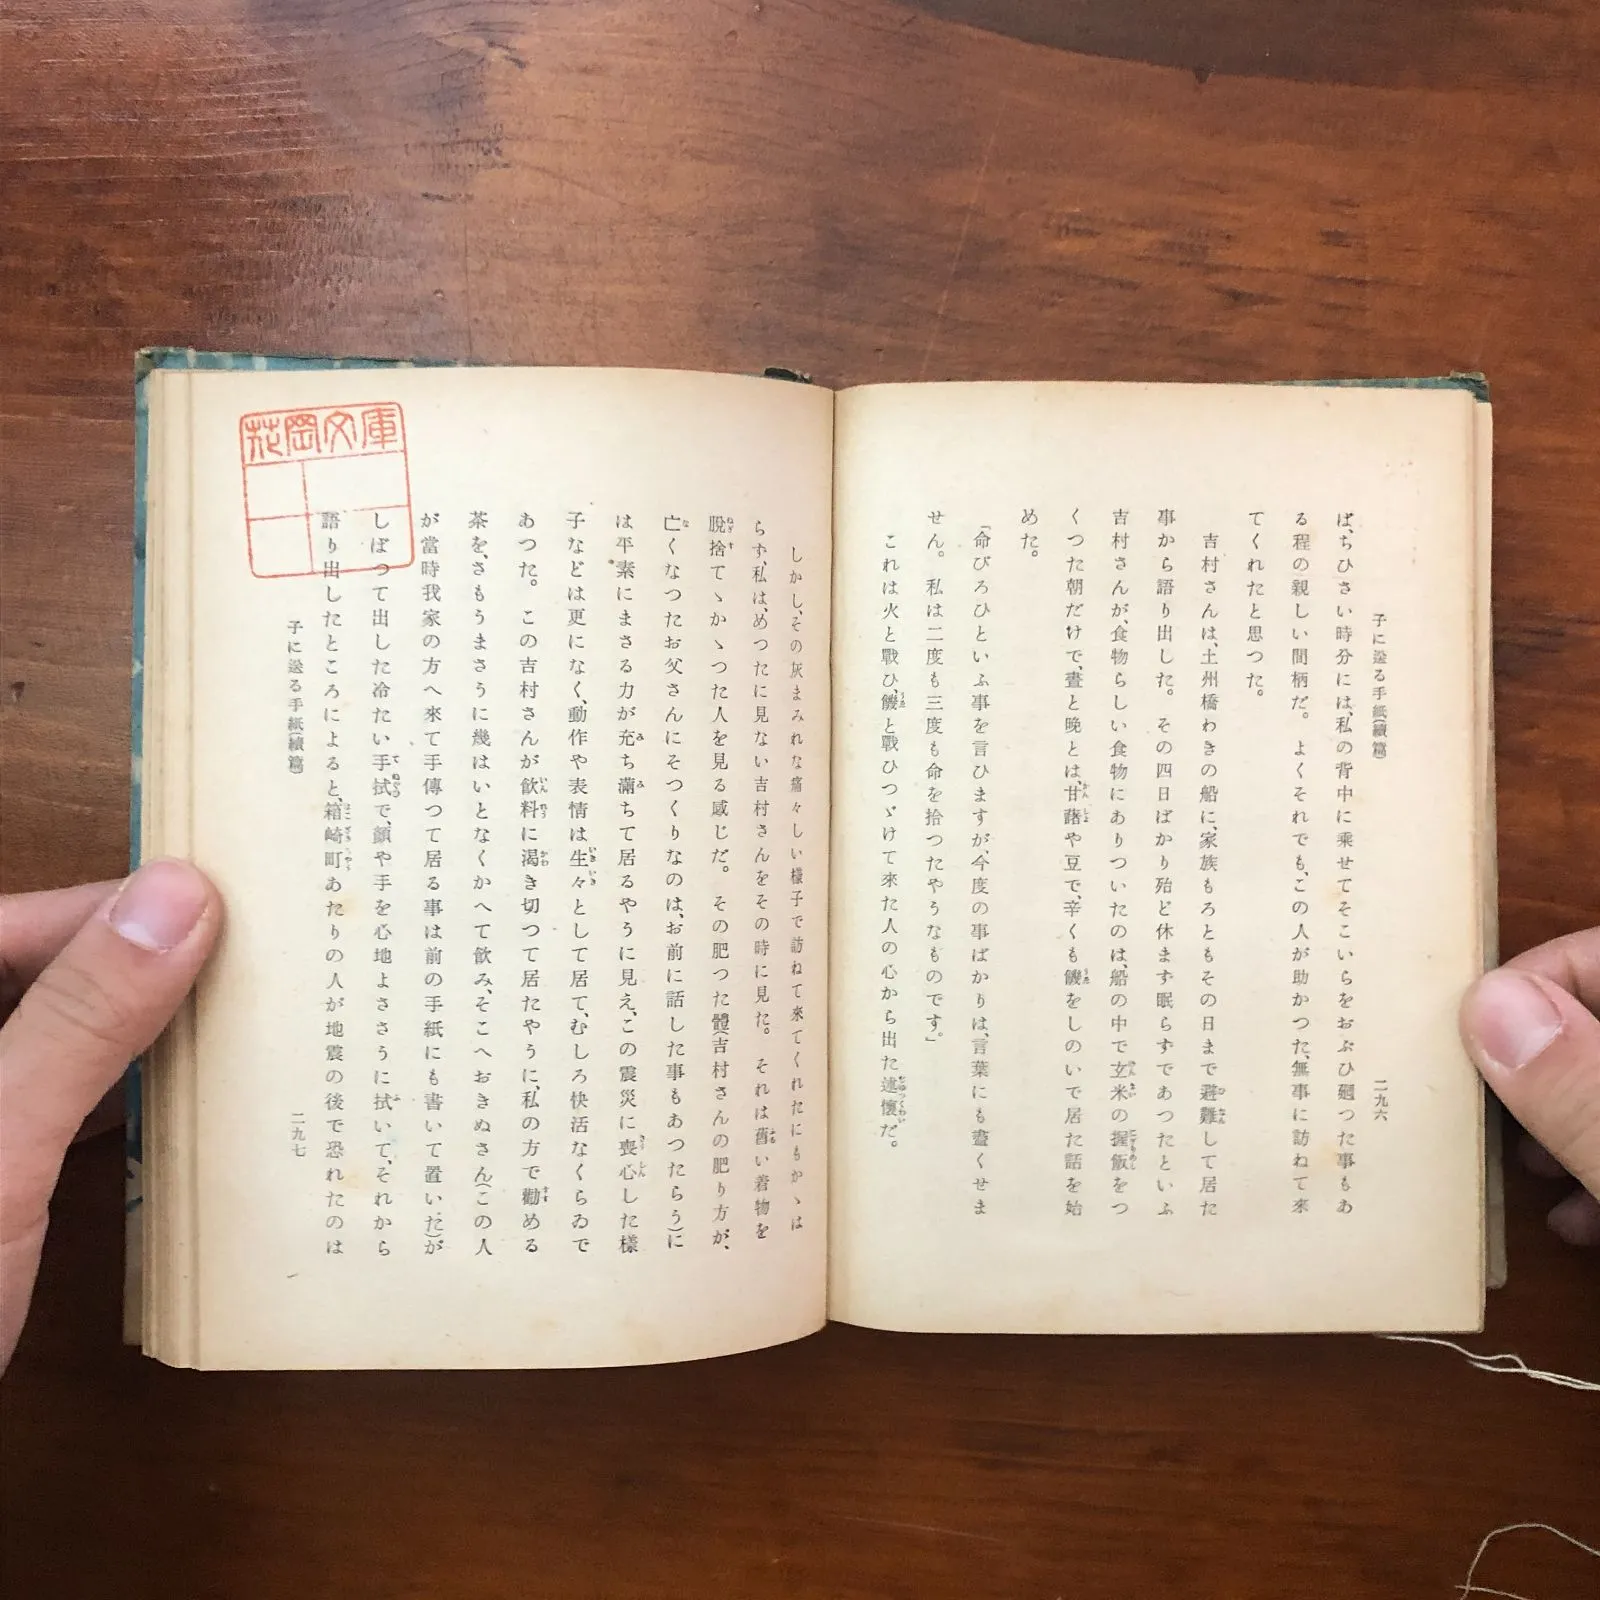 子に送る手紙(續篇)
二九六
ば、ちひさい時分には、私の背中に乘せてそこいらをおぶひ廻つた事もあ
る程の親しい間柄だ。よくそれでも、この人が助かつた、無事に訪ねて來
てくれたと思つた。
吉村さんは、土州橋わきの船に、家族もろともその日まで避難して居た
事から語り出した。その四日ばかり殆ど休まず眠らずであつたといふ
吉村さんが、食物らしい食物にありついたのは、船の中で玄米の握飯をつ
くつた朝だけで、晝と晩とは、甘藷や豆で、辛くも饑をしのいで居た話を始
めた。
「命びろひといふ事を言ひますが、今度の事ばかりは、言葉にも盡くせま
せん。私は二度も三度も命を拾つたやうなものです。」
これは火と戰ひ、饑と戰ひつゞけて來た人の心から出た述懷だ。
しかし、その灰まみれな痛々しい樣子で訪ねて來てくれたにもかゝは
らず、私は、めつたに見ない吉村さんをその時に見た。それは舊い着物を
脫捨てゝかゝつた人を見る感じだ。その肥つた體(吉村さんの肥り方が、
亡くなつたお父さんにそつくりなのは、お前に話した事もあつたらう)に
は平素にまさる力が充ち滿ちて居るやうに見え、この震災に喪心した樣
子などは更になく、動作や表情は生々として居て、むしろ快活なくらゐで
あつた。この吉村さんが飮料に渴き切つて居たやうに、私の方で勸める
茶を、さもうまさうに幾はいとなくかへて飮み、そこへおきぬさん(この人
が當時我家の方へ來て手傳つて居る事は前の手紙にも書いて置いた)が
しぼつて出した冷たい手拭で、顏や手を心地よささうに拭いて、それから
語り出したところによると、箱崎町あたりの人が地震の後で恐れたのは
子に送る手紙(續篇)
二九七
岡文庫